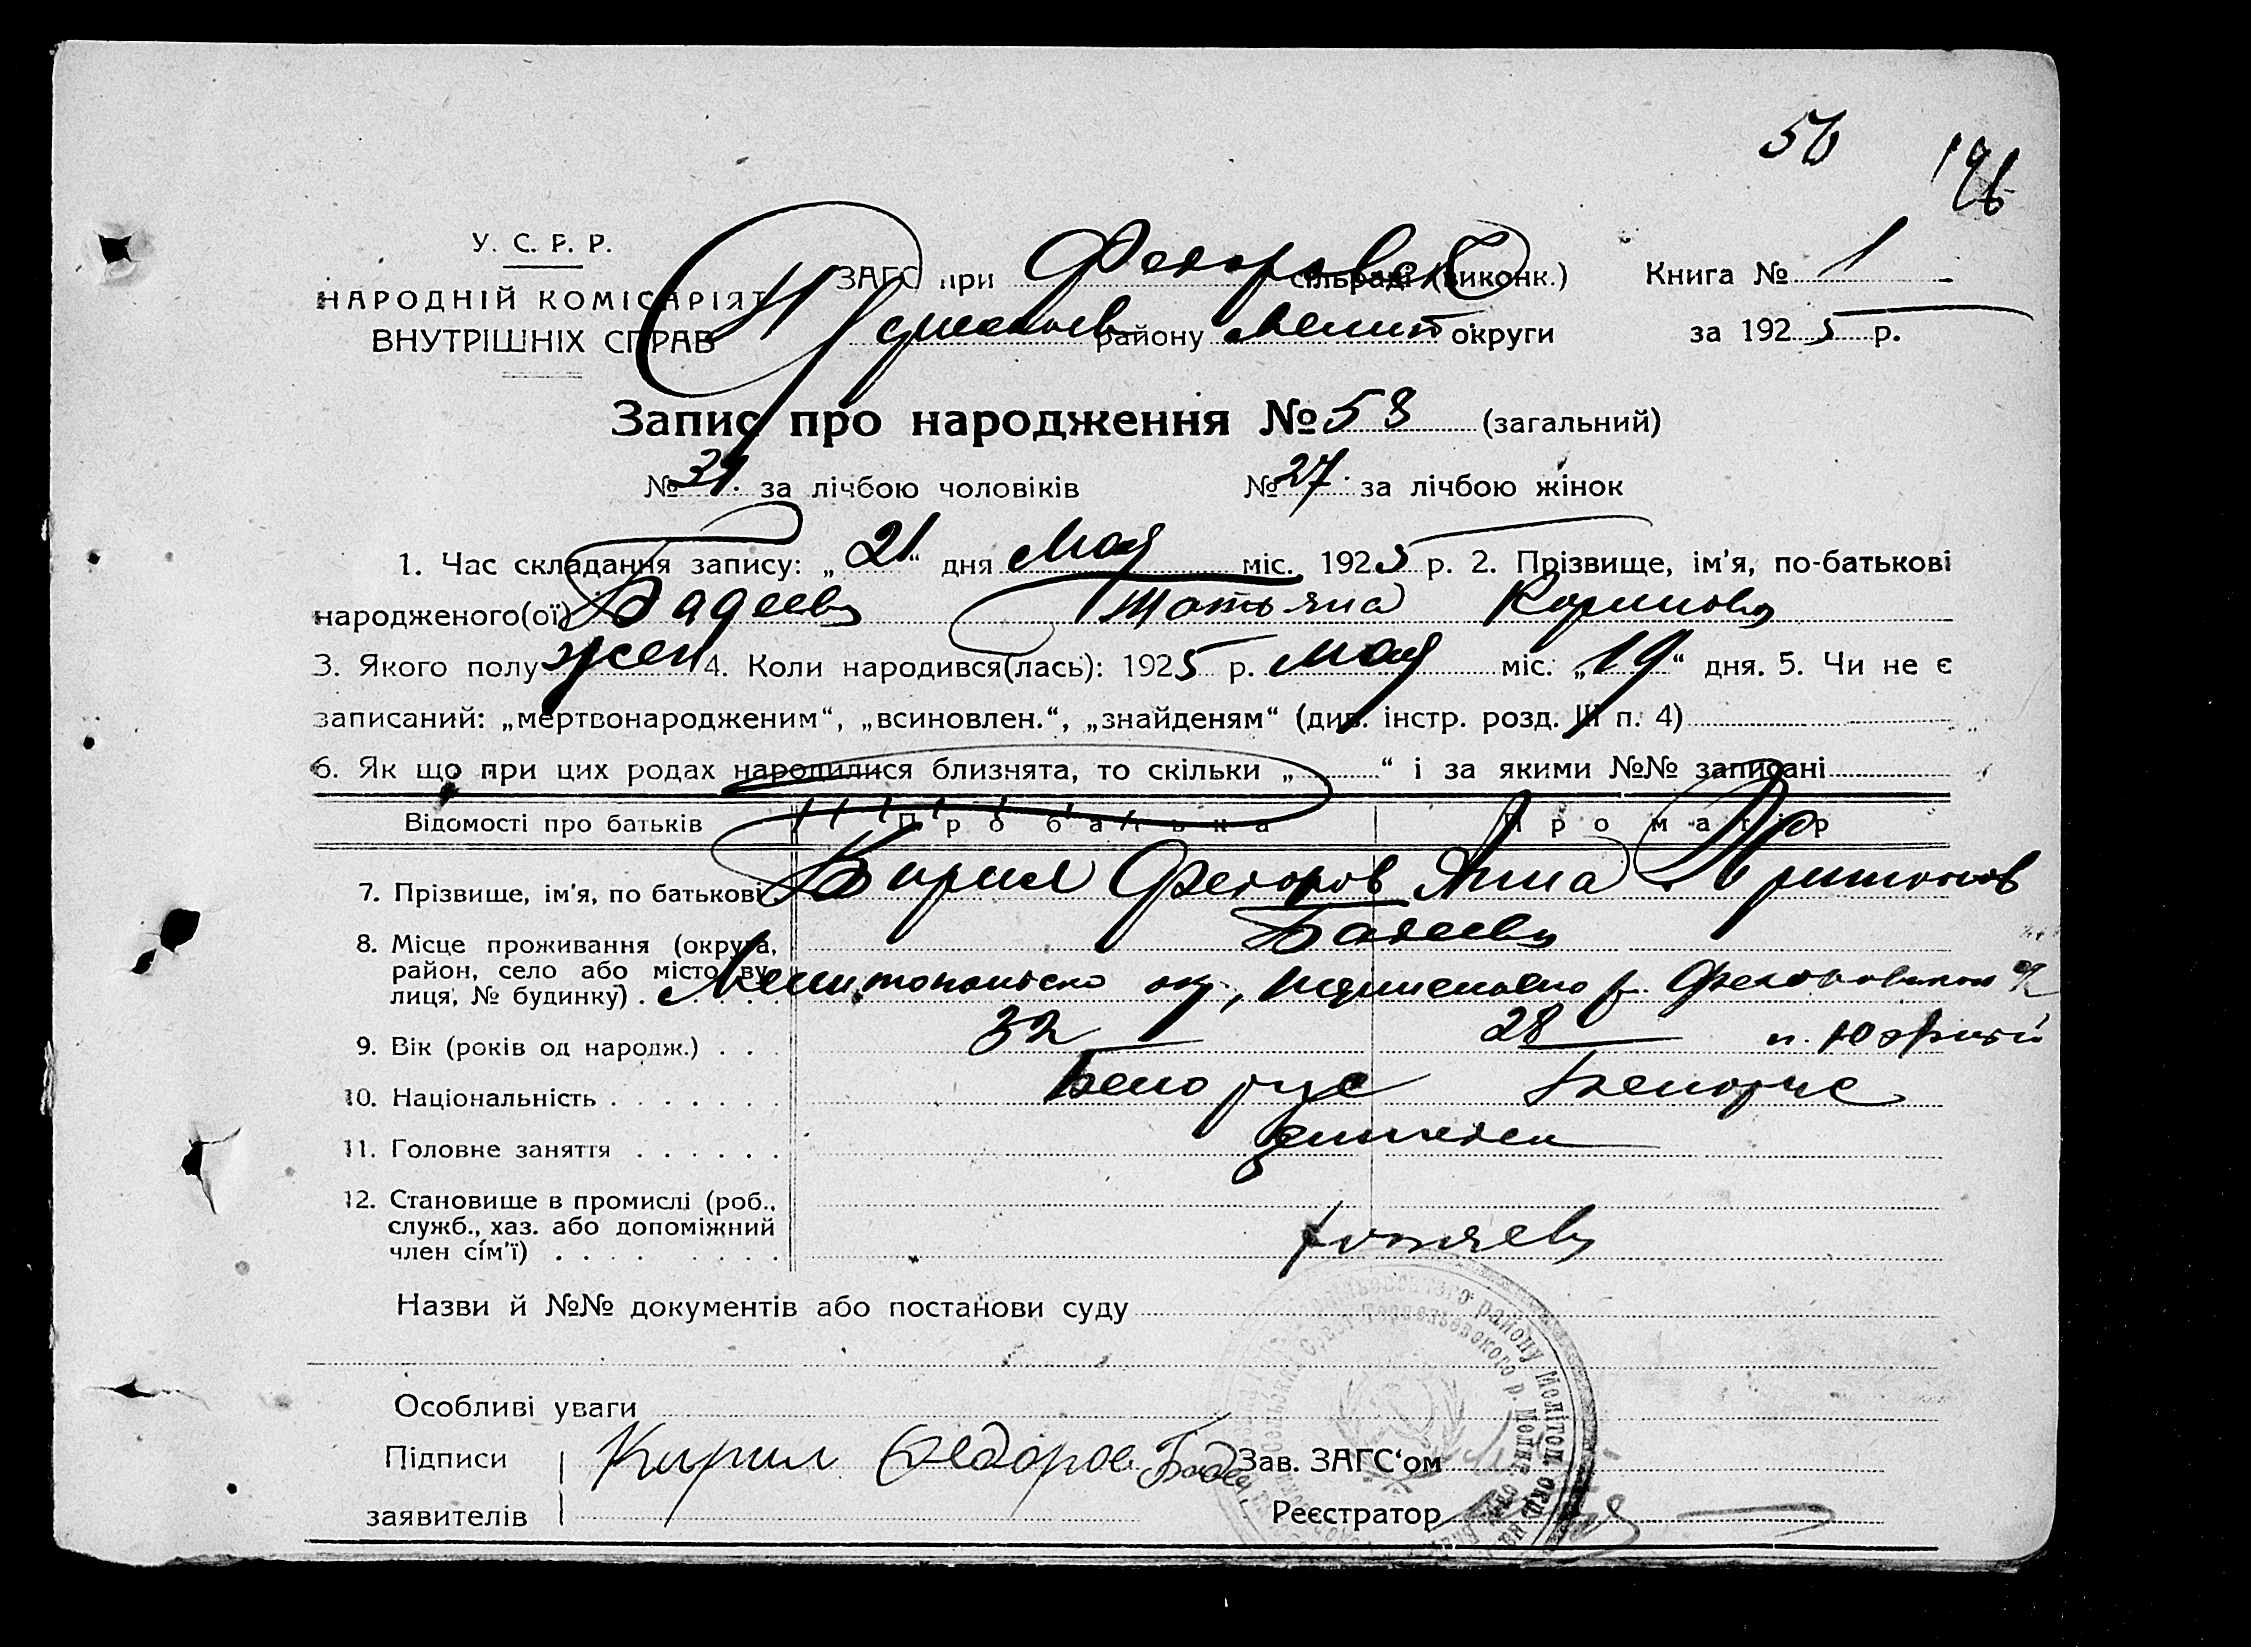 56
196
У. С. Р. Р.
НАРОДНІЙ КОМІСАРІЯТ
ВНУТРІШНІХ СПРАВ
ЗАГС при Федоровск сільраді (виконк.)
Книга № 1
району Мелит округи
за 1925 р.
Запис про народження № 58 (загальний)
№ 31. за лічбою чоловіків № 27. за лічбою жінок
1. Час складання запису: „21“ дня Мая міс. 1925 р. 2. Прізвище, ім'я, по-батькові
народженого(ої) Бадеева Татьяна Кирилова
3. Якого полу жен 4. Коли народився(лась): 1925 р. Мая міс. „19“ дня. 5. Чи не є
записаний: „мертвонародженим“, „всиновлен.“, „знайденям“ (див. інстр. розд. III п. 4)
6. Як що при цих родах народилися близнята, то скільки „ “ і за якими №№ записані
Відомості про батьків Про батька Про матір
7. Прізвище, ім'я, по батькові Кирил Федоров Анна
Бадеевы
8. Місце проживання (округа,
район, село або місто, ву-
лиця, № будинку) . Мелитопольско ок,
9. Вік (років од народж.) . . . 32 28
10. Національність . . . . . . . Белорус Белорус
11. Головне заняття . . . . . .
12. Становище в промислі (роб.,
служб., хаз. або допоміжний
член сім'ї) . . . . . . . . хозяева
Назви й №№ документів або постанови суду
Особливі уваги
Підписи
заявителів
Кирил Федоров Бадеев
Зав. ЗАГС‘ом
Реєстратор